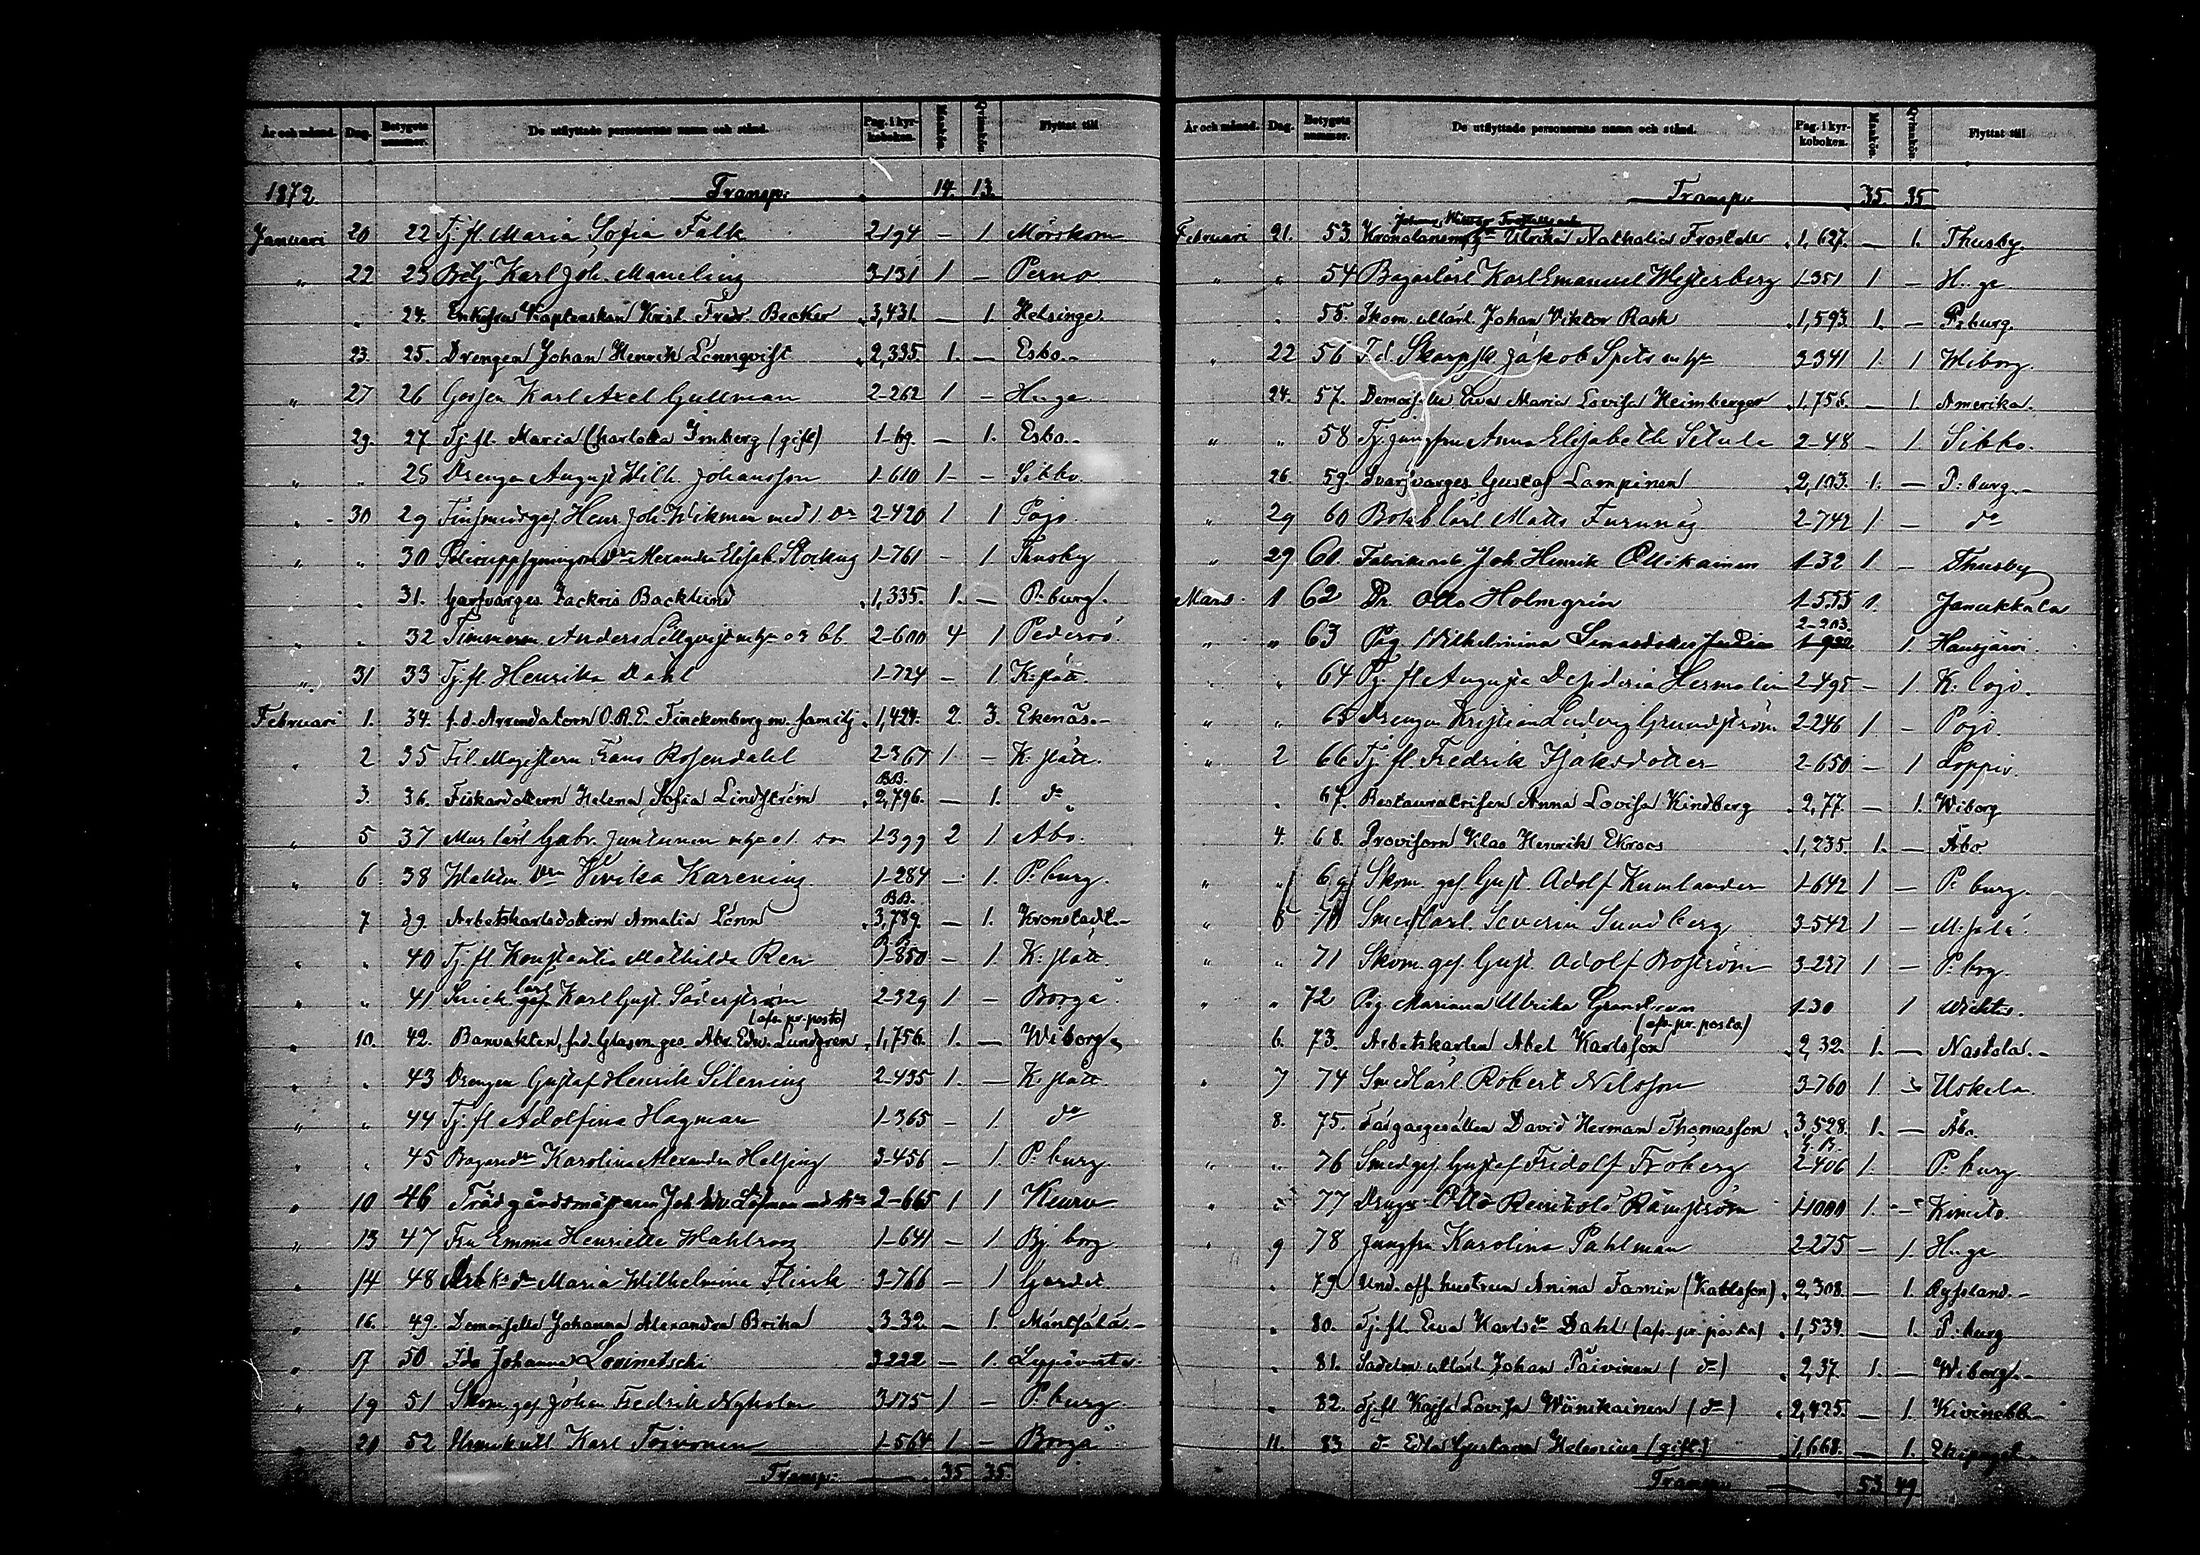 År och månad. Dag. Betygets nummer. De utflyttade personernas namn och stånd. Pag. i kyrkoboken. Mankön. Qvinnkön. Flyttat till
1872 Transp: 14. 13.
Januari 20 22 Tj. fl. Maria Sofia Falk 2-194 — 1 Mörskom
" 22 23 Betj Karl Joh. Maneling 3-131 1 — Perno
" 24. Enkefru Kaptenskan Krist. Fredr. Becker 3,431. — 1. Helsinge.
23. 25. Drengen Johan Henrik Lönnqvist 2,335. 1. — Esbo.
" 27 26 Gossen Karl Axel Gullman 2-262 1 — H:ge
29. 27. Tj. fl. Maria Charlotta Irnberg (gift) 1-49. — 1. Esbo.
" " 28 Drengen August Wilh. Johansson 1-610 1 — Sibbo.
" 30 29 Finsmedges. Henr. Joh. Wikman med 1. dr 2-420 1 1 Pojo.
" " 30 drn Alexandra Elisab. 1-761 — 1 Thusby
" 31. Garfvarges. Zackris Backlund 1,335. 1. — P:burg.
" 32 Timmerm. Anders Lillqvist m. h. o 3 bb 2-600 4 1 Pedersö
" 31 33 Tj. fl. Henrika Dahl 1-724 — 1 K:slätt.
Februari 1. 34. f.d. Arrendatorn O.R.E. Finckenberg m. familj 1,424. 2. 3. Ekenäs.
" 2 35 Fil. Magistern Frans Rosendahl 2-367 1 — K:slätt.
3. 36. Fiskardottern Helena Sofia Lindström BB. 2,796. — 1. do
" 5 37 Mur lärl. Gabr. Juntunen m. h. o 1. son 1-399 2 1 Abo.
" 6 38 Wiveka Karening 1-284 — 1. P:burg.
7 39. Arbetskarlsdottern Amalia Lönn BB. 3,789. — 1. Kronstadt.
" " 40 Tj. fl. Konstantia Mathilda Ren 850 — 1. K:slätt
" " 41 Smed lärl Karl Gust. Söderström 2-329 1 — Borgå
" 10. 42. Banvakten, f.d. Glasm. ges. Abr. Edv. Lundgren (afs. pr. posto) 1,756. 1. — Wiborg.
" " 43 Drengen Gustaf Henrik Silening 2-435 1. — K:slätt
" " 44 Tj. fl. Adolfina Hagman 1-365 — 1. do
" " 45 Bagaredr Karolina Alexandra Helsing 3-456 — 1. P:burg
" 10 46 Trädgårdsmästaren Joh. Edv. Löfman med h:u 2-665 1 1 Keuru
" 13 47 Fru Emma Henriette Wahlroos 1-641 — 1 Bj:borg.
" 14 48 Arb. k. dr Maria Wilhelmina Flinck 3-766 — 1 Gardet
" 16. 49. Demoiselle Johanna Alexandra Brika 3-32. — 1. Mäntsälä.
" 17 50 Ida Johanna Lovinetschi 3-222 — 1.
" 19 51 Skom. ges. Johan Fredrik Nyholm 3-175 1 — P:burg.
" 20 52 Karl Toivonen 1-564 1 — Borgå
Transp: 35. 35.
År och månad. Dag. Betygets nummer. De utflyttade personernas namn och stånd. Pag. i kyrkoboken. Mankön. Qvinnkön. Flyttat till
Transp: 35 35
Februari 21. 53 Ulrika Nathalia Frostdr 1,627. — 1. Thusby.
" " 54 Bagarlärl. Karl Emanuel Westerberg 1-351 1 — H:ge
55. Skom. Mlärl. Johan Viktor Rask 1,593. 1. — P:burg.
" 22 56 Jakob Spets m. h. 3-341 1. 1 Wiborg.
24. 57. Demoiselle Ewa Maria Lovisa Heimberger 1,756. — 1. Amerika.
" " 58 Tj. jungfrun Anna Elisabeth Setula 2-48 — 1 Sibbo.
26. 59. Svarfvarges. Gustaf Lampinen 2,103. 1. — P:burg.
" 29 60 Bokb. lärl. Matts Furunäg 2-742 1 — do
" 29 61. Fabriks Joh. Henrik Ollikainen 1-32 1. — Thusby
Mars 1 62 Dr. Otto Holmgrén 1-555 1. Janakkala
" " 63 Pig. Wilhelmina 2-203 1 Hausjärvi.
" " 64 Tj. fl. Augusta Desideria Hermalin 2-495 — 1 K. lojo.
" " 65 Drengen Kristian Ludvig Grundström 2-246 1 — Pojo.
" 2 66 Tj. fl. Fredrik Isaksdotter 2-650 — 1 Loppis.
" 67. Restauratrisen Anna Lovisa Kindberg 2,77. — 1. Wiborg
4. 68. Provisorn Klas Henrik Ekroos 1,235. 1. — Åbo
" " 69 Skom. ges. Gust. Adolf Kumlander 1-642 1 — P:burg.
5 70 Smedlärl. Severin Sundberg 3-542 1 — M:sälä.
" " 71 Skom. ges. Gust. Adolf Boström 3-237 1 — P:brg.
" " 72 Pig. Mariana Ulrika Grandrom 1-30 1 Wichtis.
6. 73. Arbetskarlen Abel Karlsson (afs. pr. posta) 2,32. 1. — Nastola.
" 7 74 Smedlärl. Robert Nilsson 3-760 1. — Uskela.
8. 75. Färgaregesällen David Herman Thomasson 3,528. 1. — Åbo.
" " 76 Smedges. Gustaf Fridolf Froberg 2-406 1. P:burg
" " 77 Otto Reinhold Rämström 1-1000 1. — Kimito.
" 9 78 Jungfru Karolina Pahlman 2-275 — 1. H:ge
" 79. Und. off. hustrun Amina Famin (Karlsson) 2,308. — 1. Ryssland.
" 80. Tj. fl. Ewa Karlsdr Dahl (afs. pr. posta) 1,539. — 1. P:burg
" 81. Sadelm. Mlärl. Johan Päivinen (do) 2,37. 1. — Wiborg.
" 82. Tj. fl. Kajsa Lovisa Wänikainen (do) 2,425. — 1. Kivinebb
11. 83 do Eva Gustava Helenius (gift) 1,668. — 1.
Transp: 53. 49.